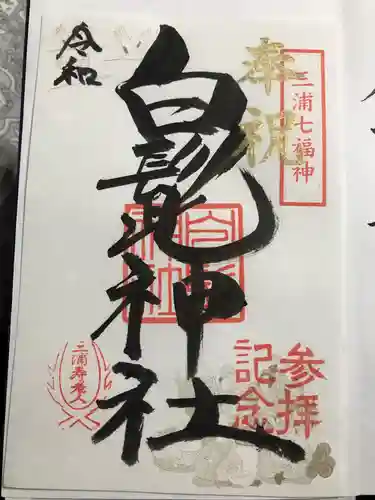 三浦七福神
奉祝
白髭神社
令和
参拝
記念
三浦寿老人